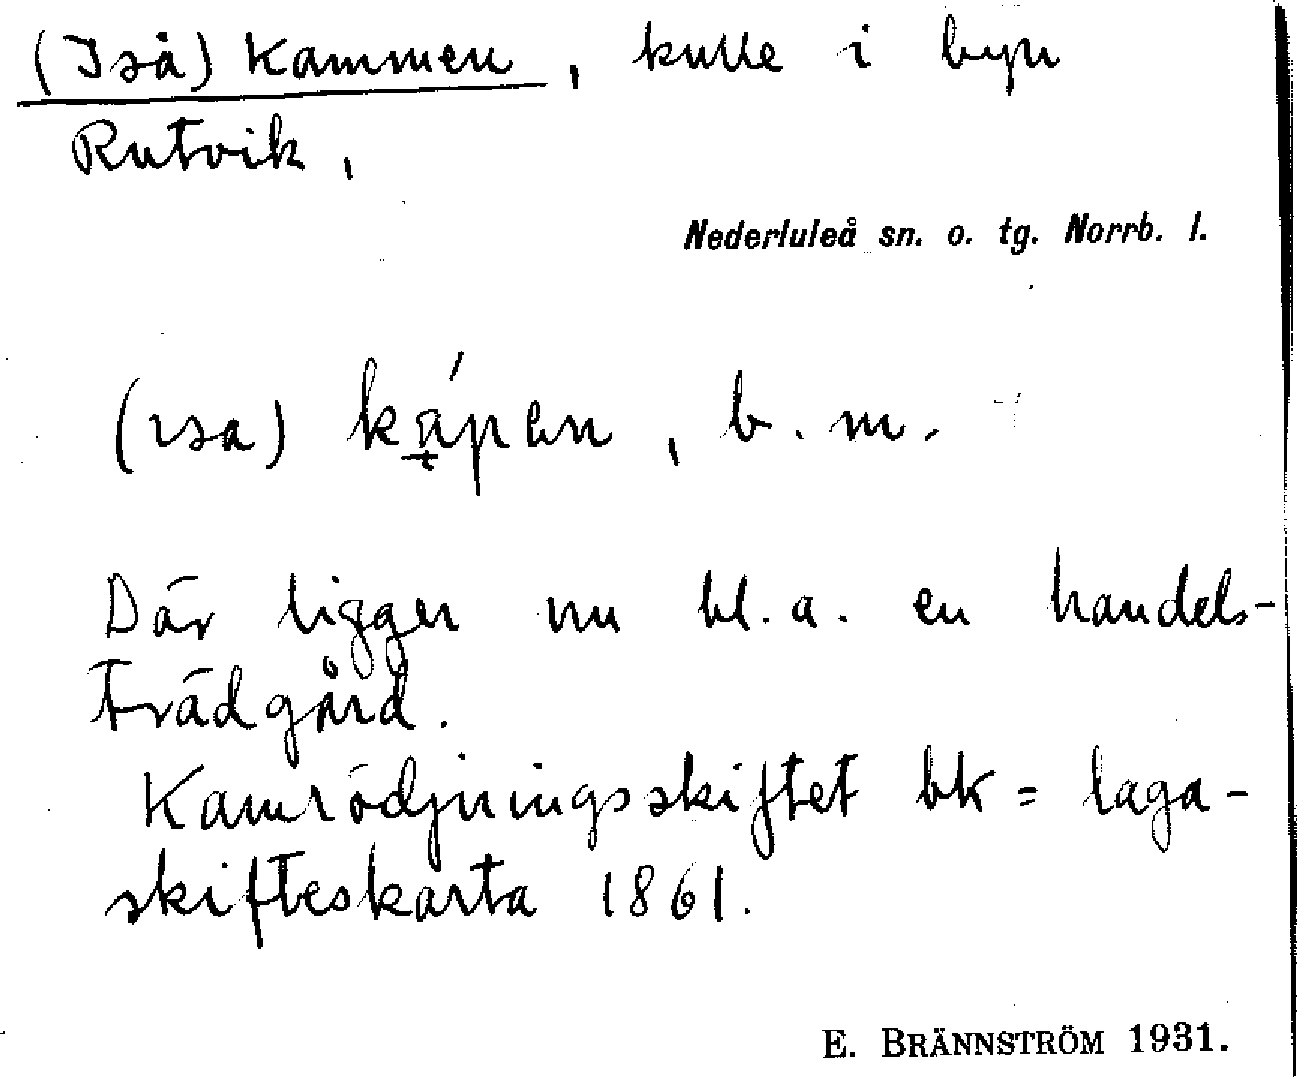 (Iså) Kammen, kulle i byn
Rutvik,
Nederluleå sn. o. tg. Norrb. l.
(ısa) , b. m.
Där ligger nu bl. a. en handels-
trädgård.
Kamrödjningsskiftet bk = laga-
skifteskarta 1861.
E. BRÄNNSTRÖM 1931.